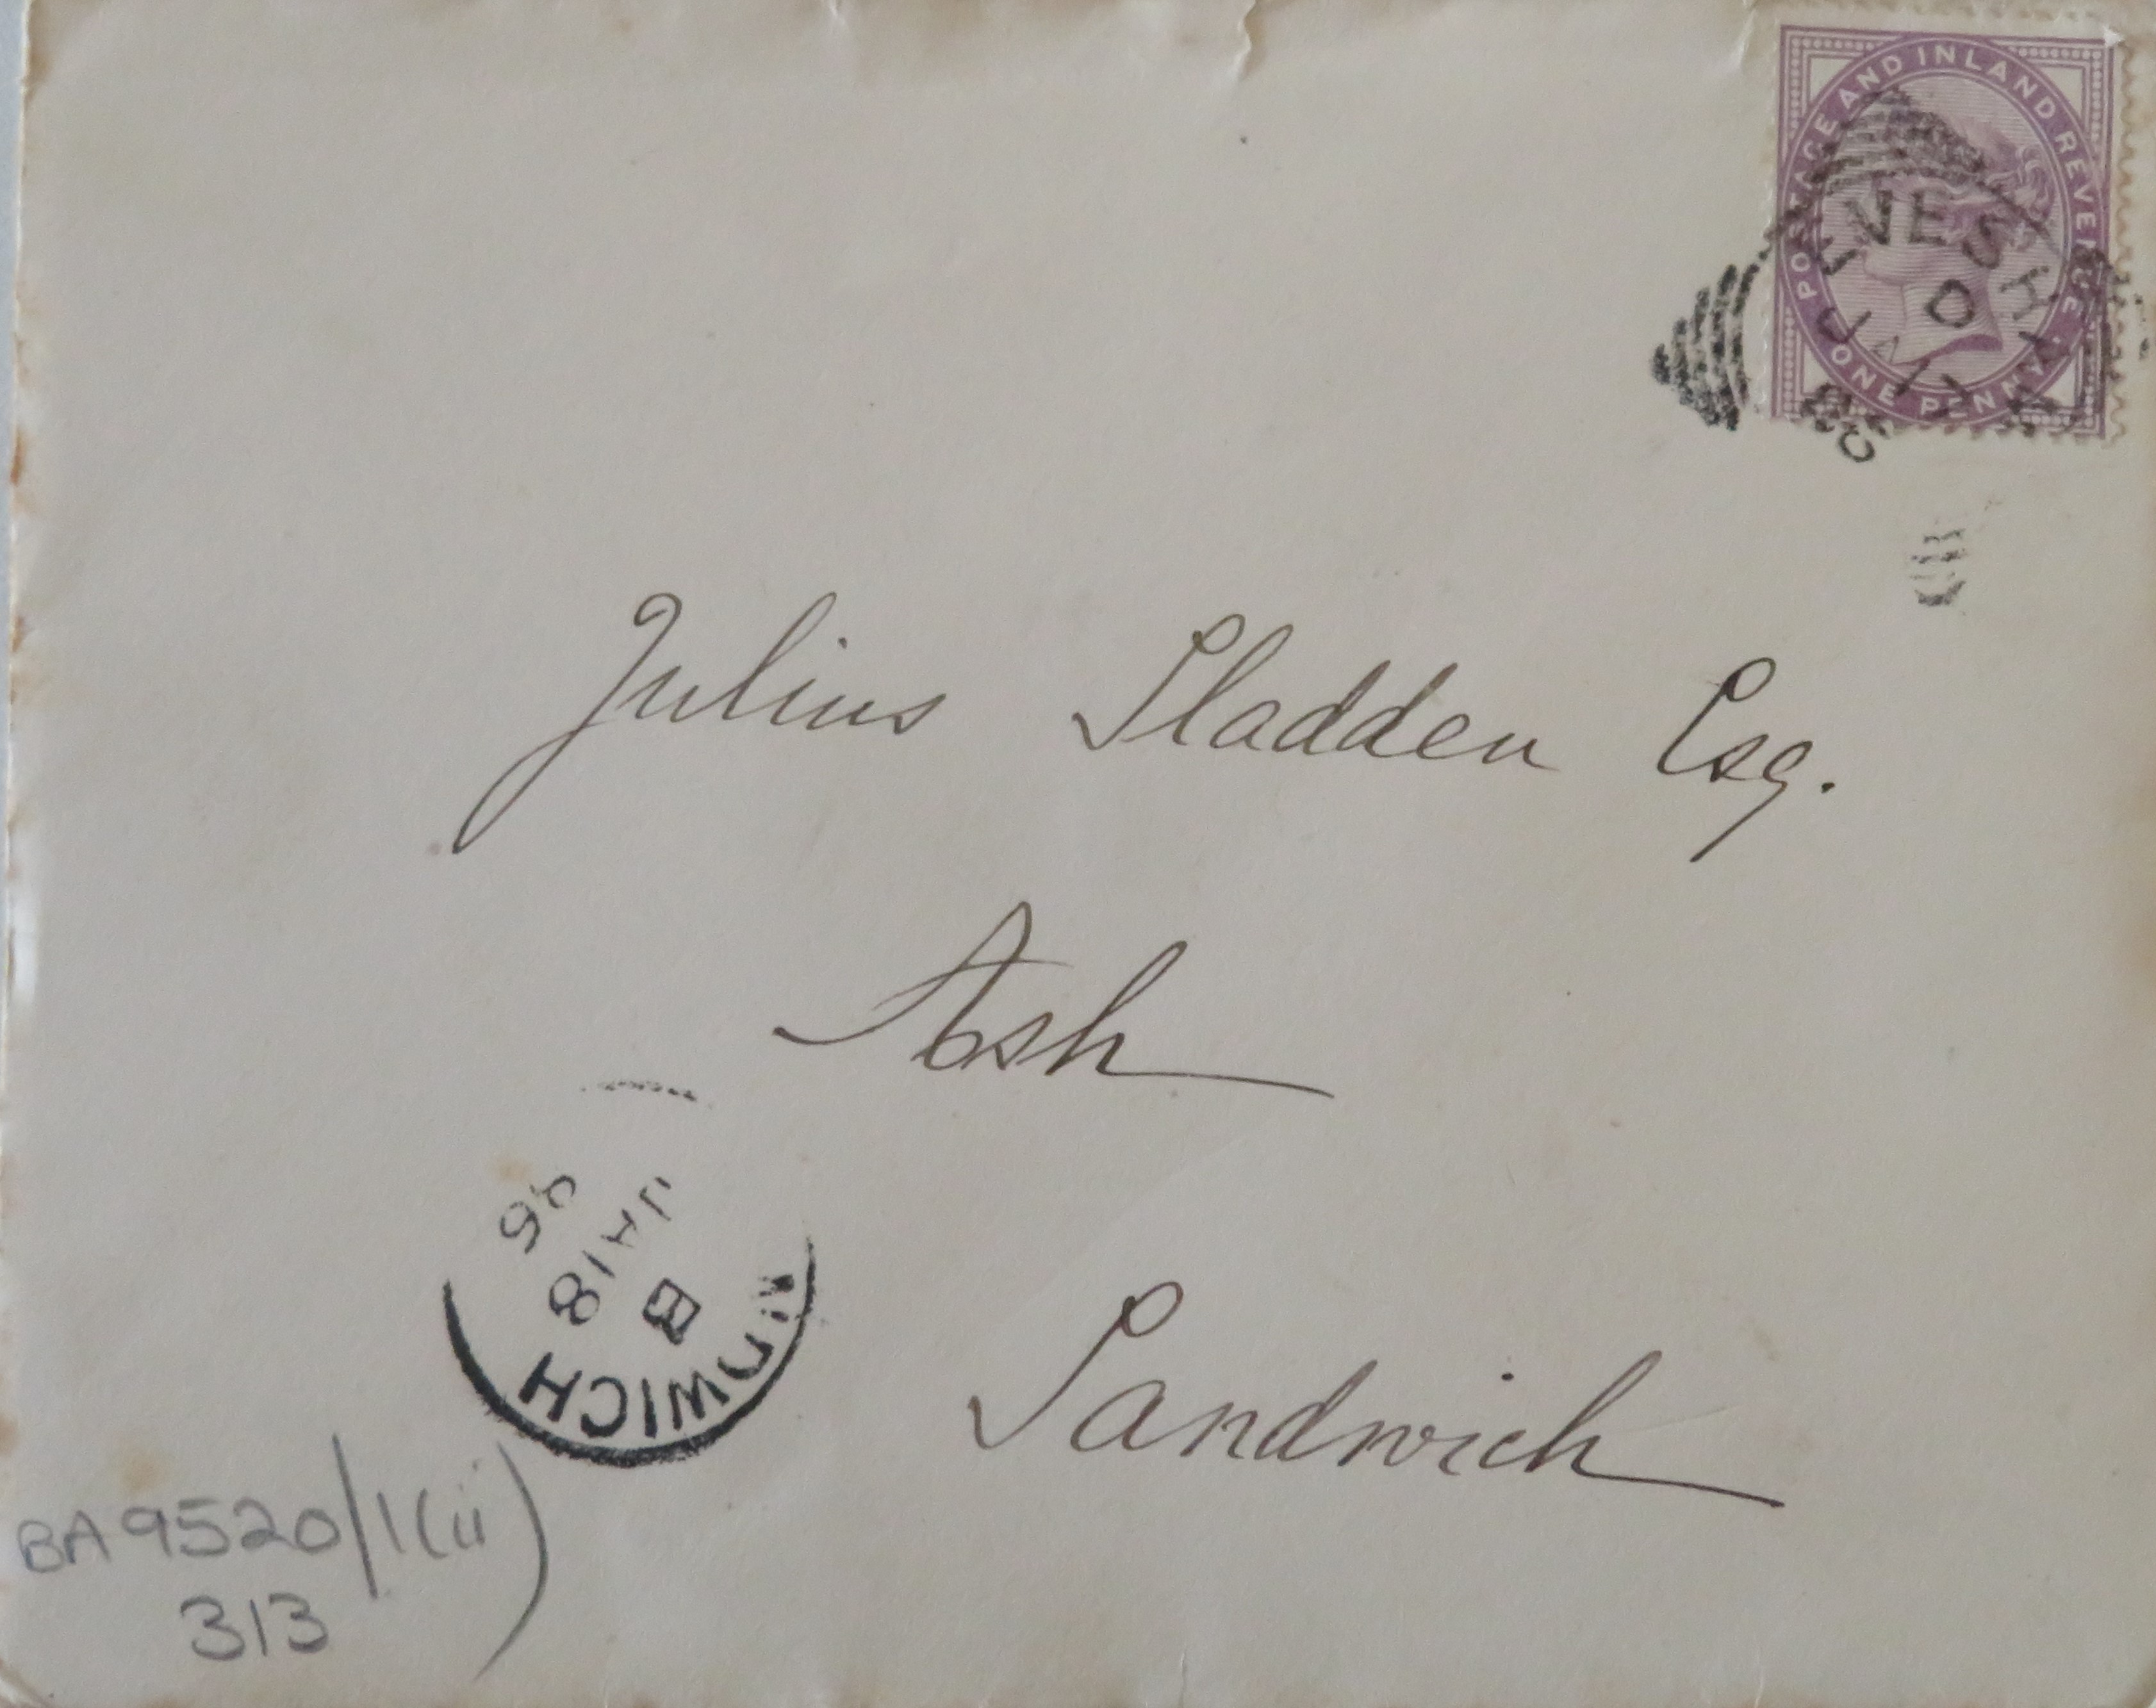 POSTAGE AND INLAND REVENUE
ONE PENNY
EVESHAM
D
JA 17
Julius Sladden Esq.
Ash
Sandwich
WICH
B
JA 18
BA 9520/1(ii)
313